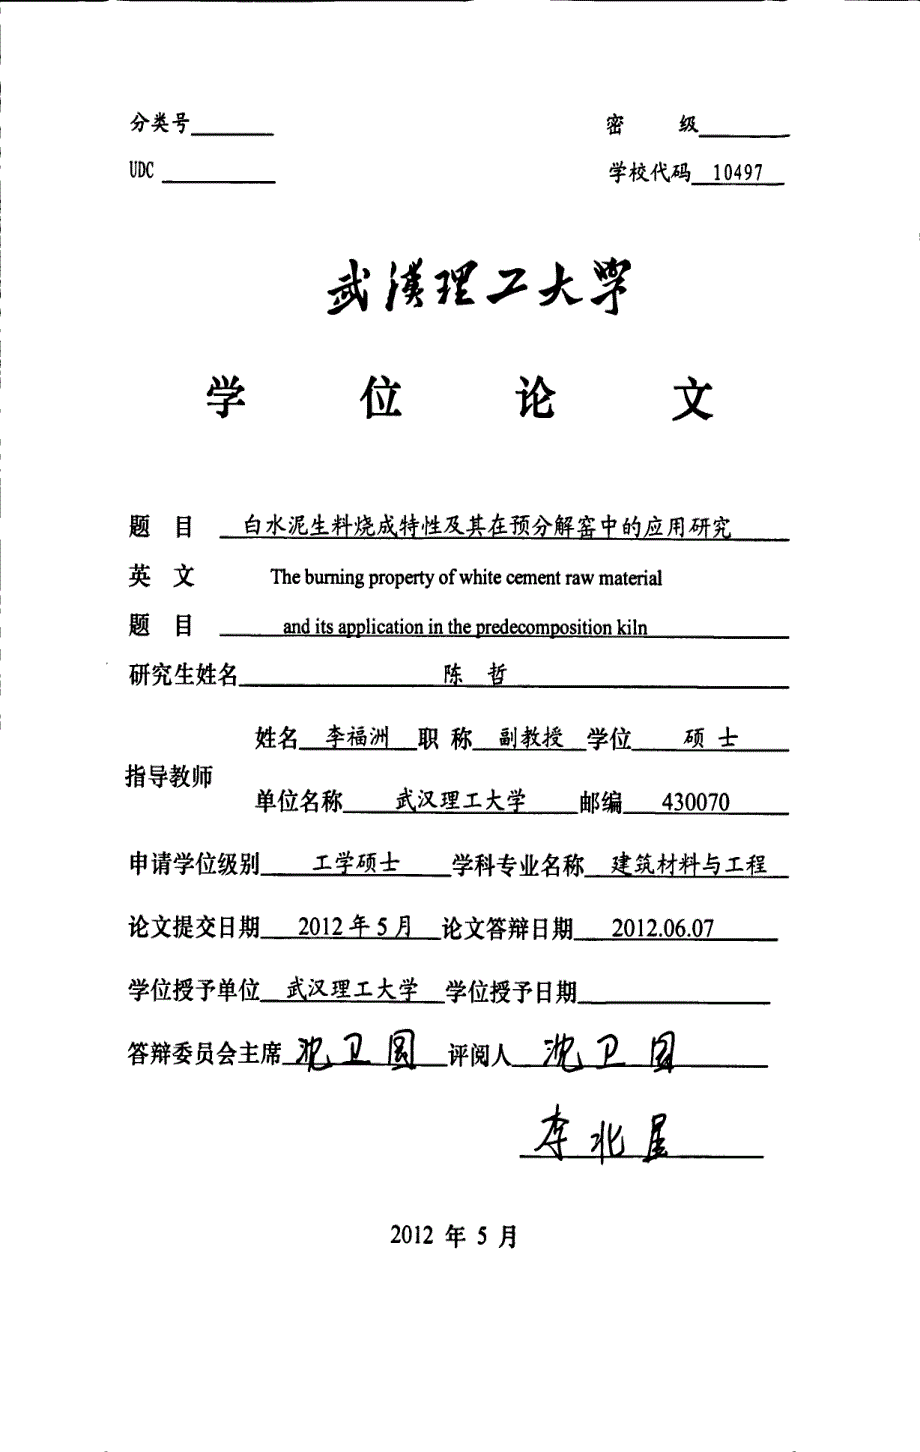 分类号 密 级
UDC 学校代码 10497
武漢理工大学
学 位 论 文
题 目 白水泥生料烧成特性及其在预分解窑中的应用研究
英 文 The burning property of white cement raw material
题 目 and its application in the predecomposition kiln
研究生姓名 陈 哲
姓名 李福洲 职 称 副教授 学位 硕 士
指导教师
单位名称 武汉理工大学 邮编 430070
申请学位级别 工学硕士 学科专业名称 建筑材料与工程
论文提交日期 2012年5月 论文答辩日期 2012.06.07
学位授予单位 武汉理工大学 学位授予日期
答辩委员会主席 沈卫国 评阅人 沈卫国
李北星
2012 年 5 月